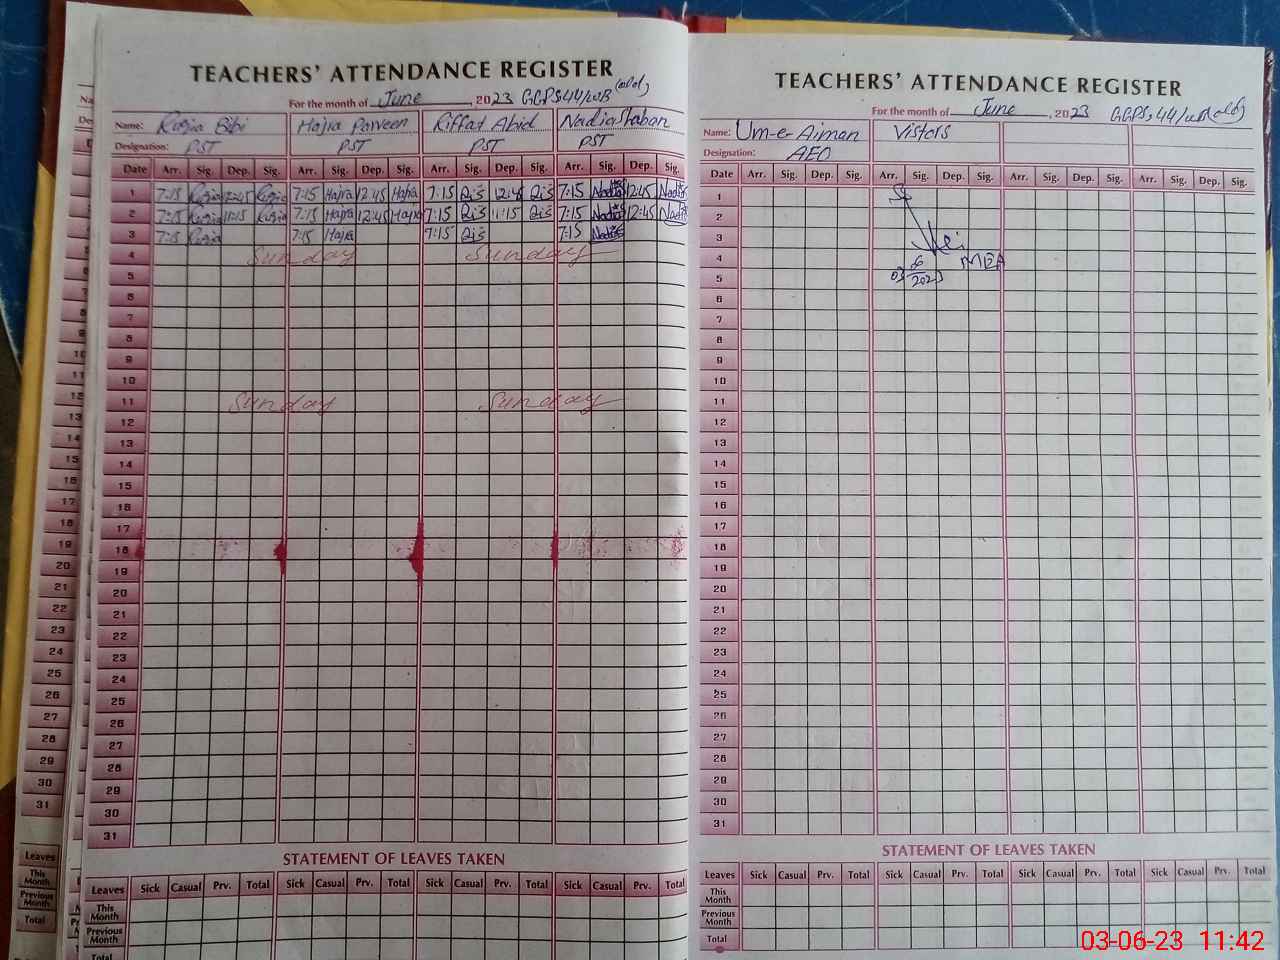 TEACHERS' ATTENDANCE REGISTER
For the month of June, 2023 GGPS 44/WB (old)
Name: Razia Bibi Hajra Parveen Riffat Abid Nadia Shaban
Designation: PST PST PST PST
Date Arr. Sig. Dep. Sig. Arr. Sig. Dep. Sig. Arr. Sig. Dep. Sig. Arr. Sig. Dep. Sig.
1 7:15 Razia 12:45 Razia 7:15 Hajra 12:45 Hajra 7:15 12:45 7:15 Nadia 12:45 Nadia
2 7:15 Razia 11:15 Razia 7:15 Hajra 12:45 Hajra 7:15 11:15 7:15 Nadia 12:45 Nadia
3 7:15 Razia 7:15 Hajra 7:15 7:15 Nadia
4 Sunday Sunday
5
6
7
8
9
10
11 Sunday Sunday
12
13
14
15
16
17
18
19
20
21
22
23
24
25
26
27
28
29
30
31
STATEMENT OF LEAVES TAKEN
Leaves Sick Casual Prv. Total Sick Casual Prv. Total Sick Casual Prv. Total Sick Casual Prv. Total
This Month
Previous Month
TEACHERS' ATTENDANCE REGISTER
For the month of June, 2023 GGPS, 44/WB (old)
Name: Um-e-Aiman Vistors
Designation: AEO
Date Arr. Sig. Dep. Sig. Arr. Sig. Dep. Sig. Arr. Sig. Dep. Sig. Arr. Sig. Dep. Sig.
1
2
3
4 MEA
5 03/6/2023
6
7
8
9
10
11
12
13
14
15
16
17
18
19
20
21
22
23
24
25
26
27
28
29
30
31
STATEMENT OF LEAVES TAKEN
Leaves Sick Casual Prv. Total Sick Casual Prv. Total Sick Casual Prv. Total Sick Casual Prv. Total
This Month
Previous Month
Total
03-06-23 11:42